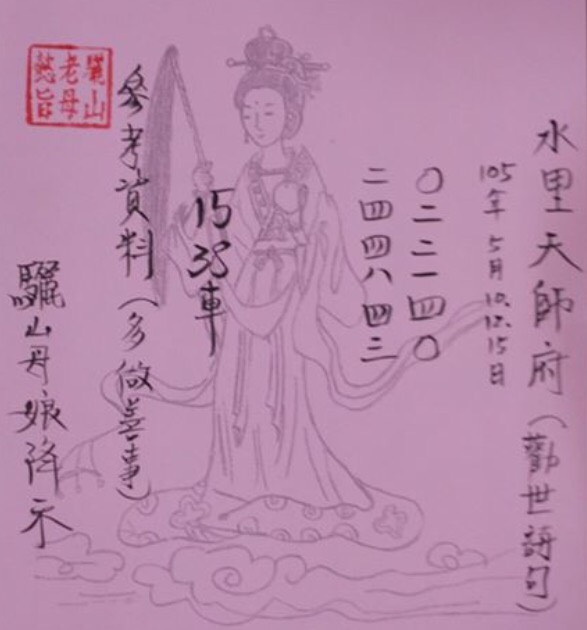 水里天師府（勸世語句）
105年5月10.12.15日
〇二二一四〇
二四四八四三
15
38車
參考資料（多做善事）
驪山母娘降示
驪山
老母
懿旨